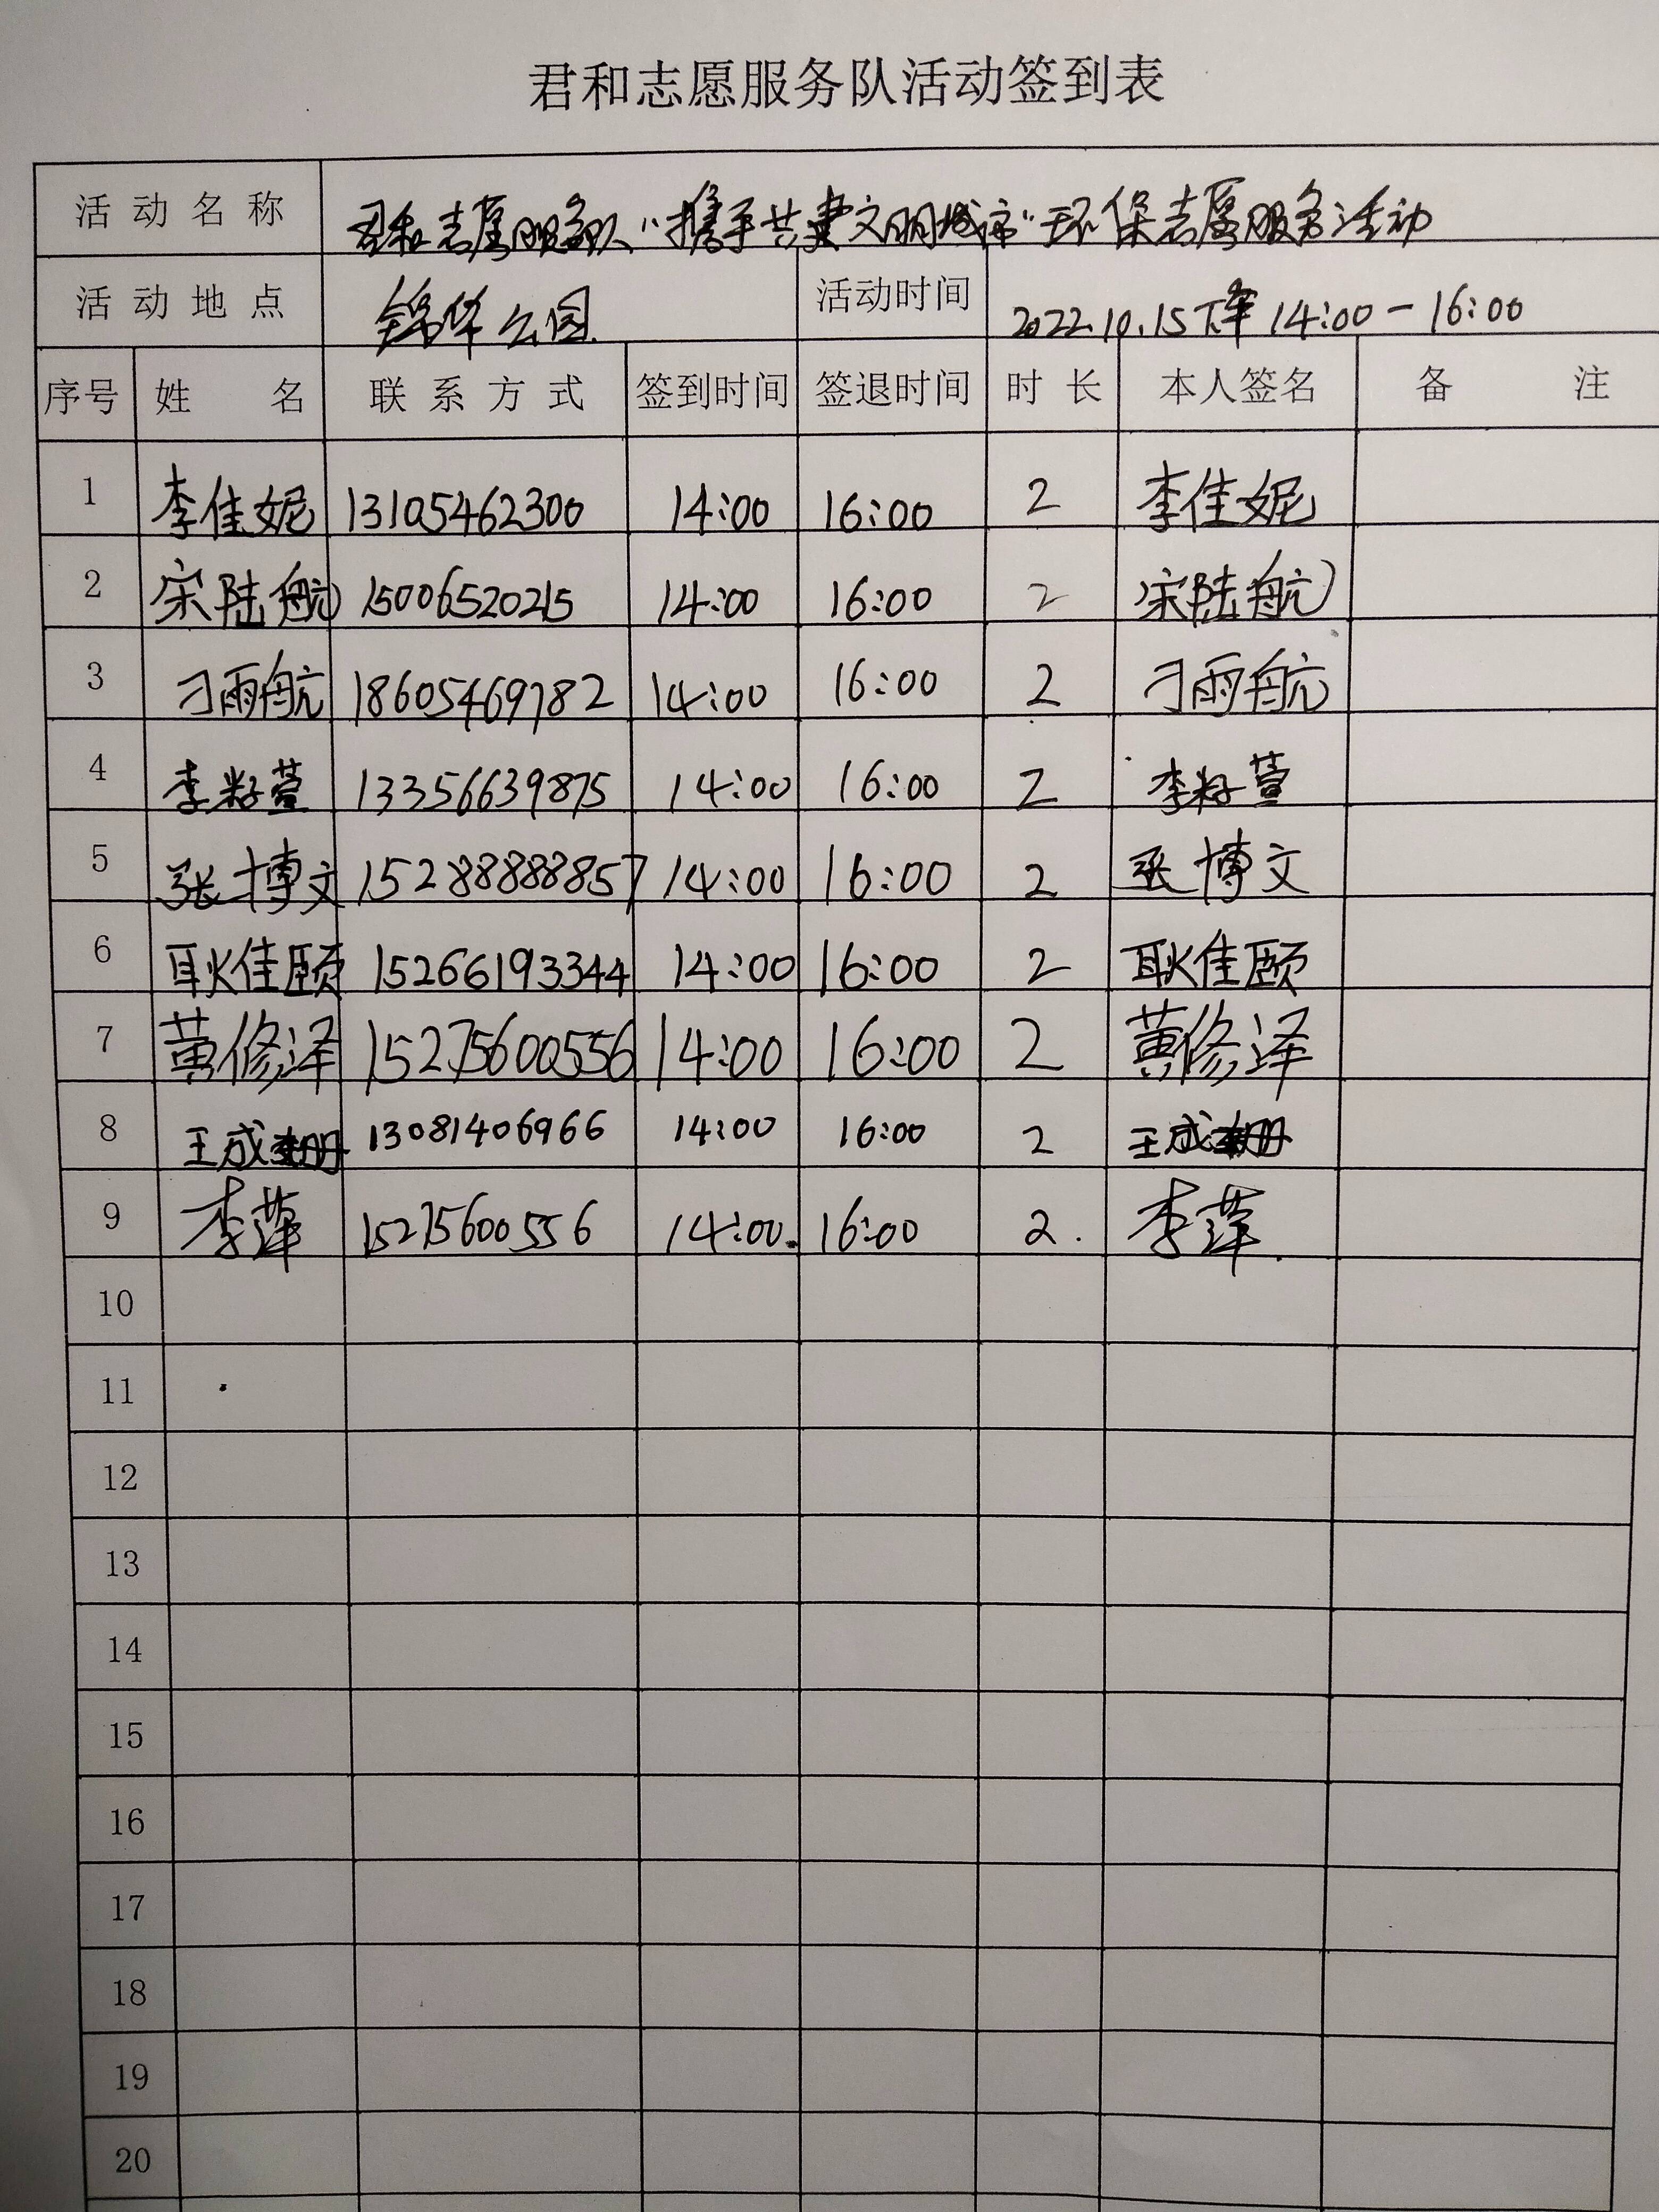 君和志愿服务队活动签到表
活动名称 君和志愿服务队"携手共建文明城市"环保志愿服务活动
活动地点 锦华公园 活动时间 2022.10.15下午 14:00-16:00
序号 姓名 联系方式 签到时间 签退时间 时长 本人签名 备注
1 李佳妮 13105462300 14:00 16:00 2 李佳妮
2 宋陆航 15006520215 14:00 16:00 2 宋陆航
3 刁雨航 18605469782 14:00 16:00 2 刁雨航
4 李籽萱 13356639875 14:00 16:00 2 李籽萱
5 张博文 15288888857 14:00 16:00 2 张博文
6 耿佳颐 15266193344 14:00 16:00 2 耿佳颐
7 黄修泽 15275600556 14:00 16:00 2 黄修泽
8 王成 13081406966 14:00 16:00 2 王成
9 李萍 15275600556 14:00. 16:00 2. 李萍.
10
11
12
13
14
15
16
17
18
19
20